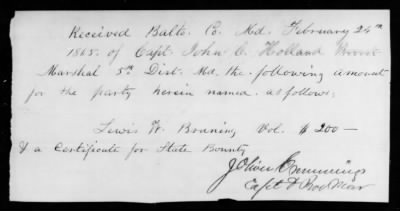 Received Balto. Co. Md. February 24th
1865. of Capt. John C. Holland Provost
Marshal 5th Dist. Md. the following amount
for the party herein named as follows;
Lewis H. Bruning Vol. $ 200 —
& a Certificate for State Bounty
J Oliver Cummings
Capt & Pro Mar